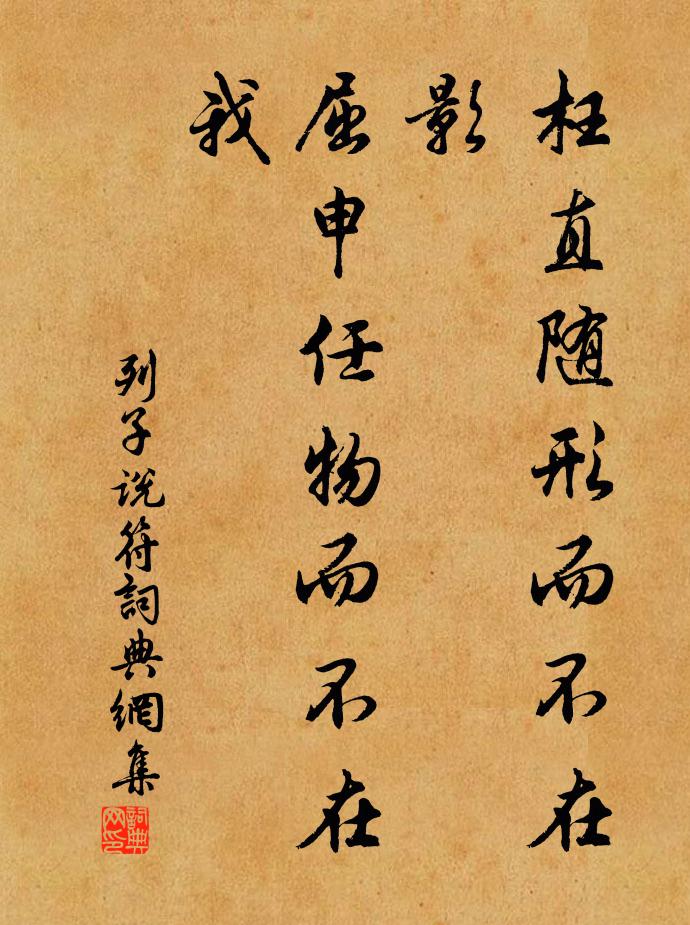 枉直随形而不在
影
屈申任物而不在
我
列子说符詞典網集
詞典
网印